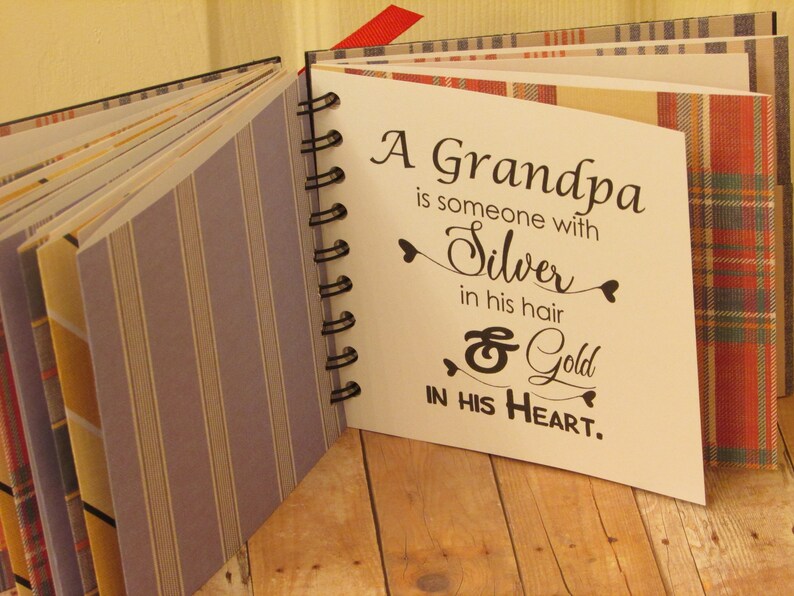 A Grandpa
is someone with
Silver
in his hair
& Gold
IN HIS HEART.